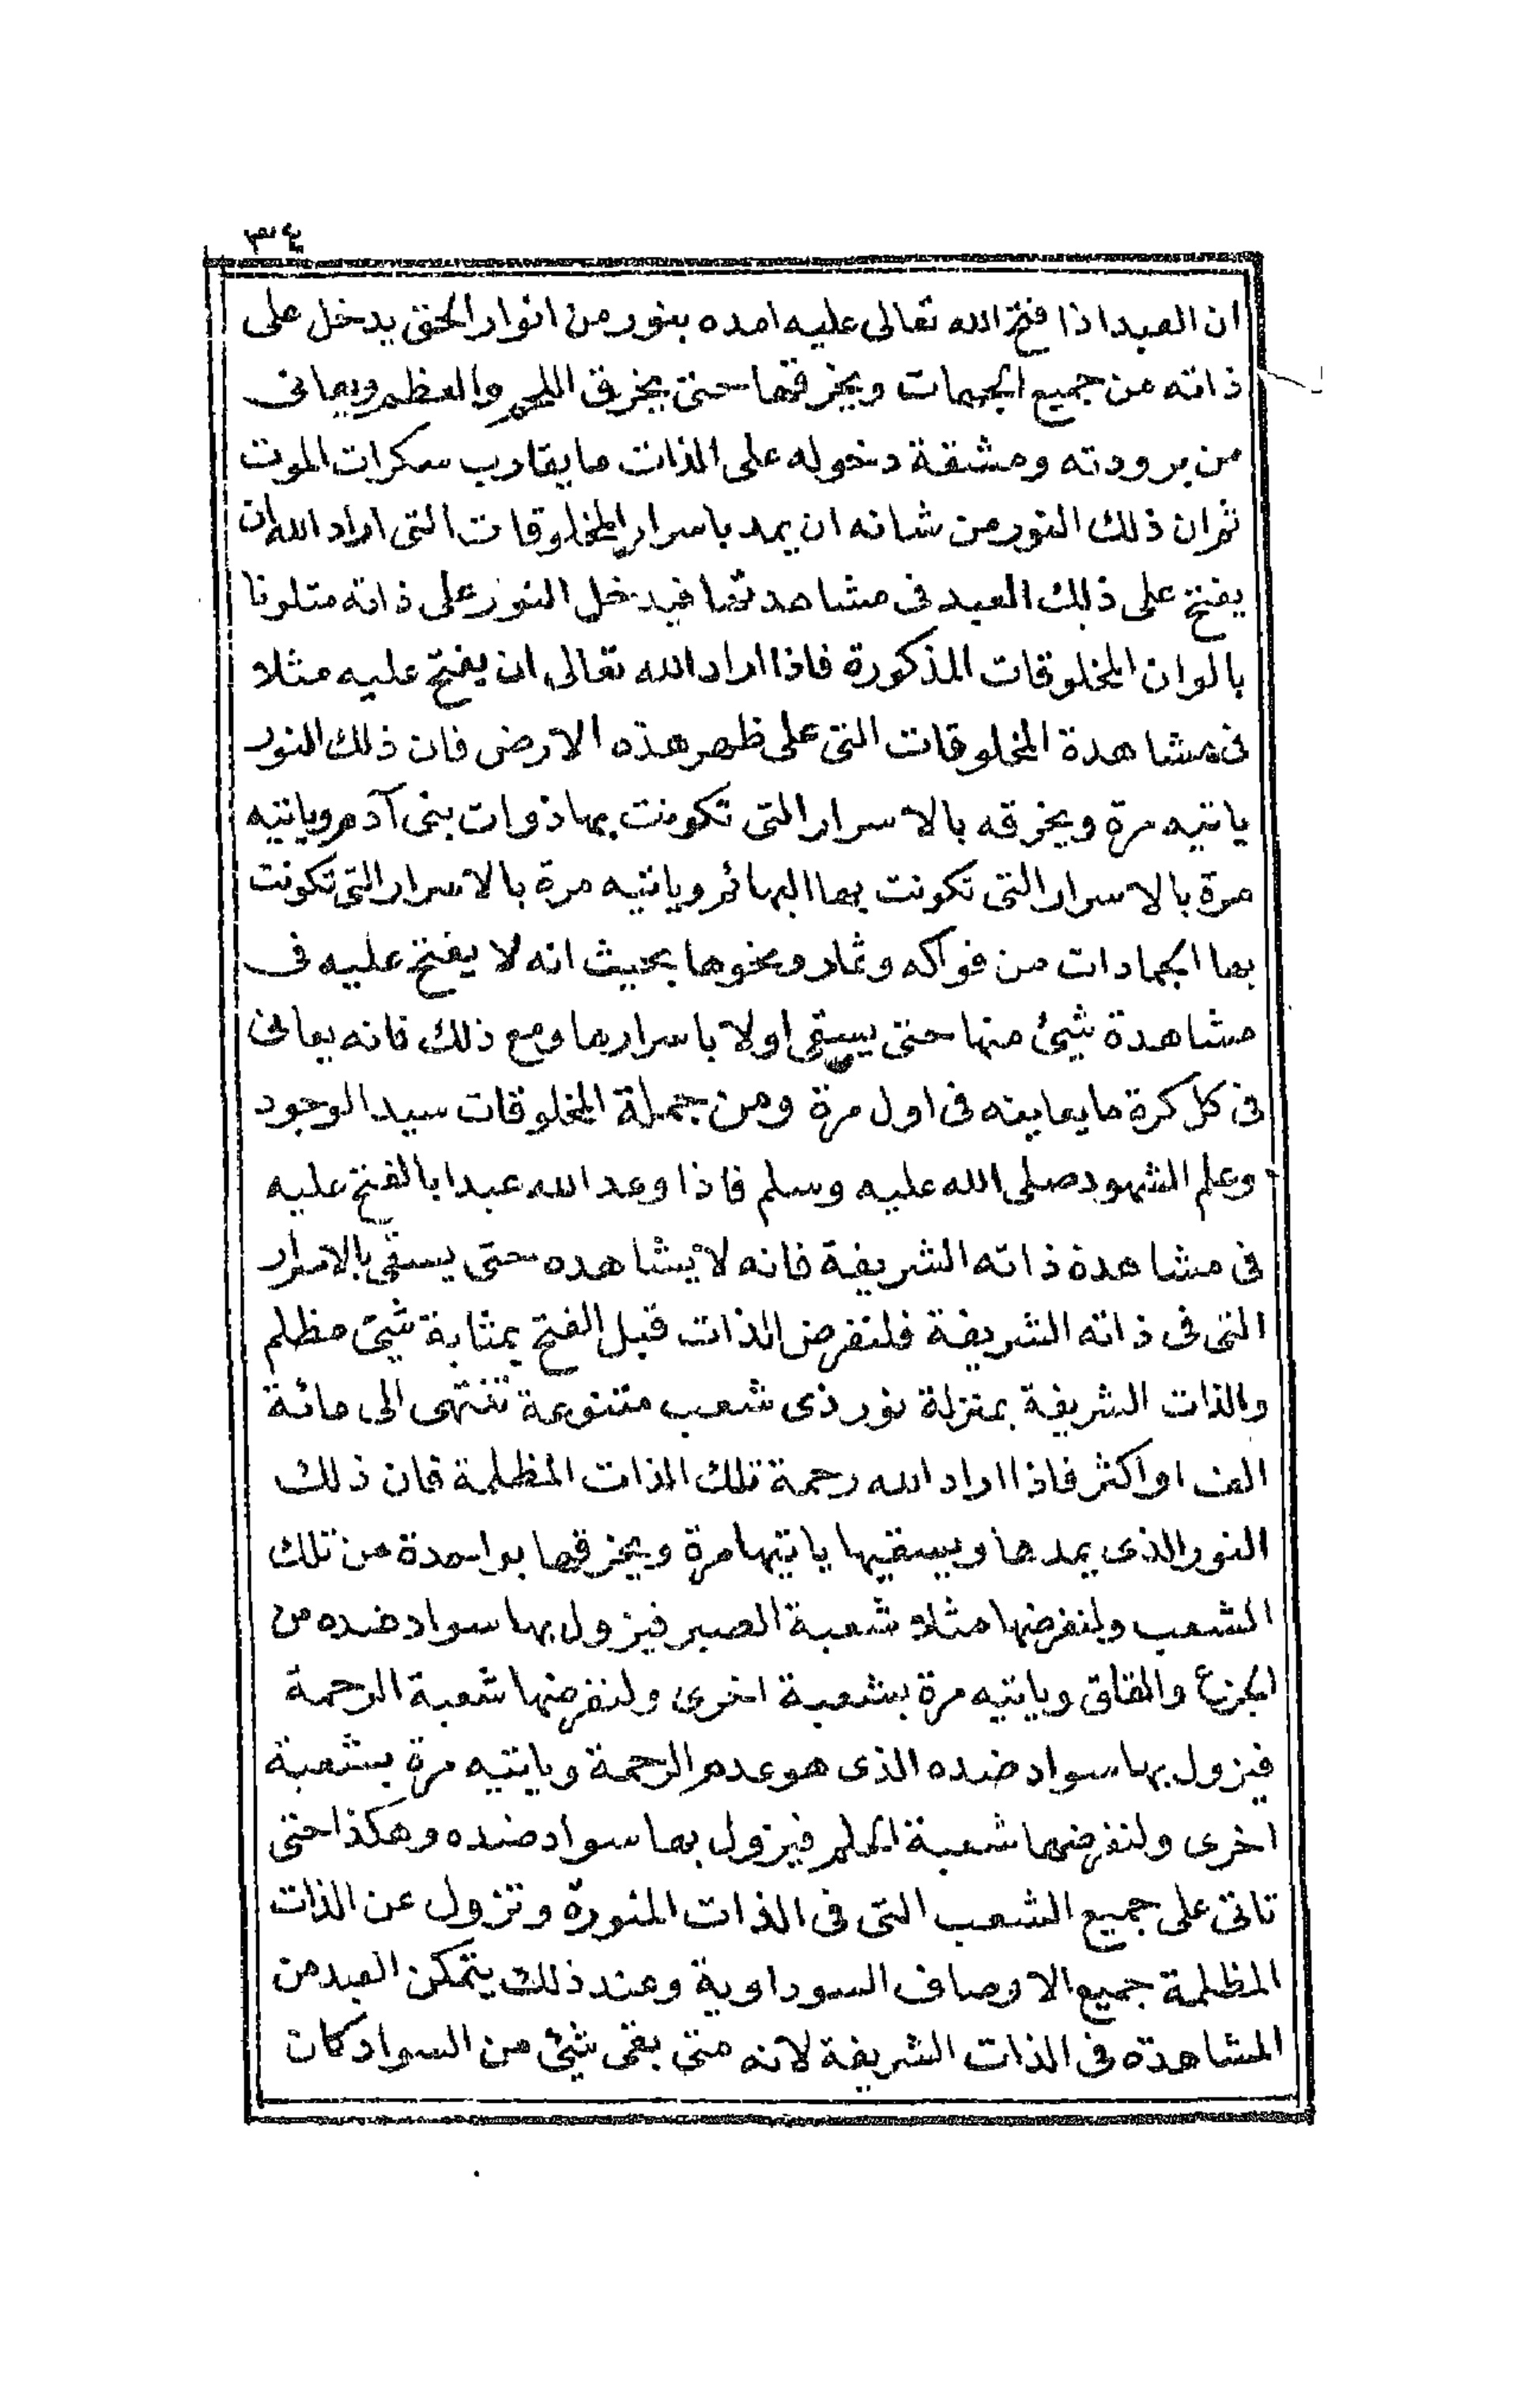 ٣٤
ان العبد اذا فتح الله تعالى عليه امده بنور من انوار الحق يدخل على
ذاته من جميع الجهات ويخرقها حتى يخرق اللحم والعظم ويعانى
من برودته ومشقة دخوله على الذات ما يقارب سكرات الموت
ثم ان ذلك النور من شانه ان يمد باسرار المخلوقات التى اراد الله ان
يفتح على ذلك العبد فى مشاهدتها فيدخل النور على ذاته متلونا
بالوان المخلوقات المذكورة فاذا اراد الله تعالى ان يفتح عليه مثلا
فى مشاهدة المخلوقات التى على ظهر هذه الارض فان ذلك النور
ياتيه مرة ويخرقه بالاسرار التى تكونت بها ذوات بنى آدم وياتيه
مرة بالاسرار التى تكونت بها البهائم وياتيه مرة بالاسرار التى تكونت
بها الجمادات من فواكه وثمار ونحوها بحيث انه لا يفتح عليه فى
مشاهدة شيئ منها حتى يسقى اولا باسرارها ومع ذلك فانه يعانى
فى كل كرة ما يعاينه فى اول مرة ومن جملة المخلوقات سيد الوجود
وعلم الشهود صلى الله عليه وسلم فاذا وعد الله عبدا بالفتح عليه
فى مشاهدة ذاته الشريفة فانه لا يشاهده حتى يسقى بالاسرار
التى فى ذاته الشريفة فلنفرض الذات قبل الفتح بمثابة شيئ مظلم
والذات الشريفة بمنزلة نور ذى شعب متنوعة تنتهى الى مائة
الف او اكثر فاذا اراد الله رحمة تلك الذات المظلمة فان ذلك
النور الذى يمدها ويسقيها ياتيها مرة ويخرقها بواحدة من تلك
الشعب ولنفرضها مثلا شعبة الصبر فيزول بها سواد ضده من
الجزع والقلق وياتيه مرة بشعبة اخرى ولنفرضها شعبة الرحمة
فيزول بها سواد ضده الذى هو عدم الرحمة وياتيه مرة بشعبة
اخرى ولنفرضها شعبة الحلم فيزول بها سواد ضده وهكذا حتى
تاتى على جميع الشعب التى فى الذات المنورة وتزول عن الذات
المظلمة جميع الاوصاف السوداوية وعند ذلك يتمكن العبد من
المشاهدة فى الذات الشريفة لانه متى بقى شيئ من السواد كان